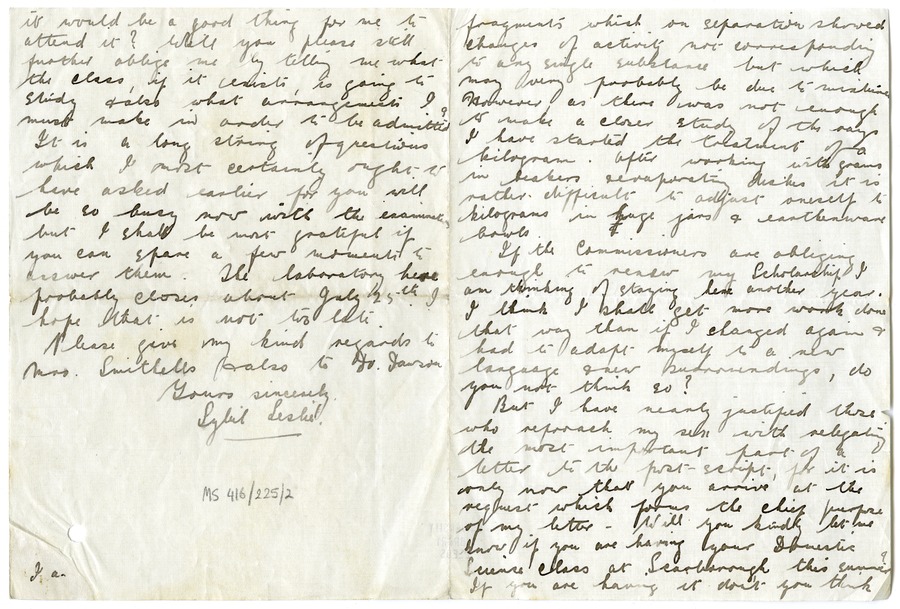 it would be a good thing for me to
attend it? Will you please still
further oblige me by telling me what
the class, if it exists, is going to
study & also what arrangements I
must make in order to be admitted?
It is a long string of questions
which I most certainly ought to
have asked earlier for you will
be so busy now with the examinations,
but I shall be most grateful if
you can spare a few moments to
answer them. The laboratory here
probably closes about July 25th I
hope that is not too late.
Please give my kind regards to
Mrs. Smithells & also to Dr. Dawson
Yours sincerely.
Sybil Leslie.
MS 416/225/2
I a-
fragments which on separation showed
changes of activity not corresponding
to any single substance but which
may very probably be due to mixtures
However as there was not enough
to make a closer study of the rays
I have started the treatment of a
kilogram. After working with grams
in beakers & evaporating dishes it is
rather difficult to adjust oneself to
kilograms in huge jars & earthenware
bowls.
If the Commissioners are obliging
enough to renew my Scholarship I
am thinking of staying here another year.
I think I shall get more work done
that way than if I changed again &
had to adapt myself to a new
language & new surroundings, do
you not think so?
But I have nearly justified those
who reproach my sex with relegating
the most important part of a
letter to the post-script, for it is
only now that you arrive at the
request which forms the chief purpose
of my letter - Will you kindly let me
know if you are having your Domestic
Science class at Scarborough this summer?
If you are having it don't you think